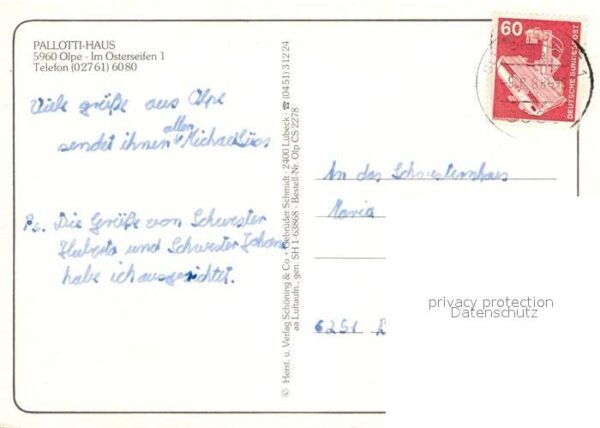 PALLOTTI-HAUS
5960 Olpe - Im Osterseifen 1
Telefon (0 27 61) 60 80
Viele grüße aus Olpe
allen
sendet ihnen Michael
Ps. Die Grüße von Schwester
Huberta und Schwester
habe ich ausgerichtet.
© Herst. u. Verlag Schöning & Co + Gebrüder Schmidt · 2400 Lübeck · ☎ (04 51) 3 12 24
aa Luftaufn., gen. SH 1-63868 · Bestell-Nr. Olp CS 2278
60
DEUTSCHE BUNDESPOST
An das Schwesternhaus
Maria
6251
privacy protection
Datenschutz